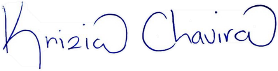 Knizia Chavira